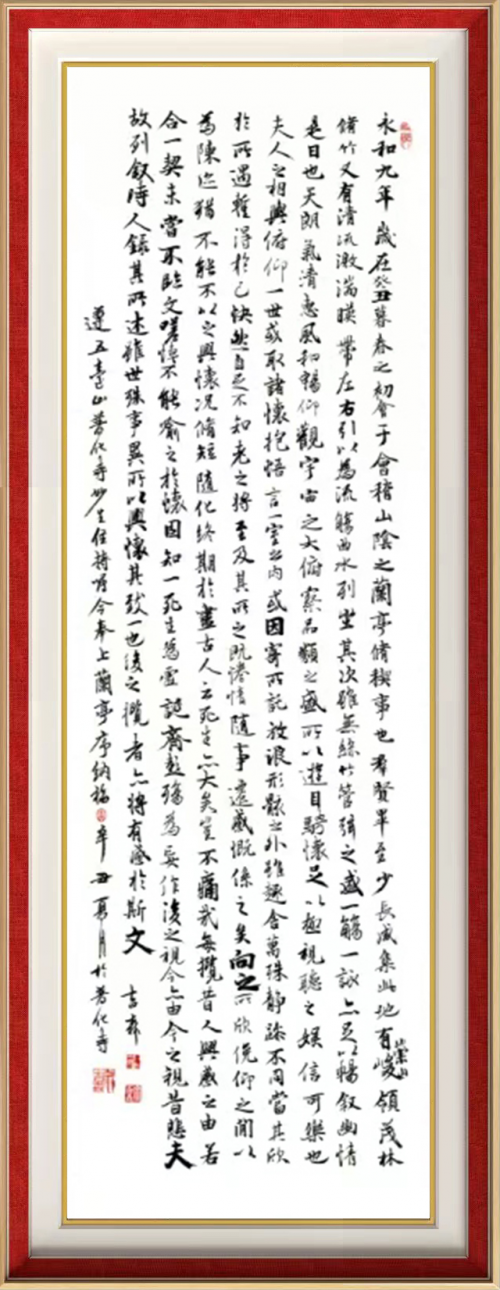 永和九年歲在癸丑暮春之初會于會稽山陰之蘭亭脩稧事也羣賢畢至少長咸集此地有崇山峻領茂林
脩竹又有清流激湍暎帶左右引以為流觴曲水列坐其次雖無絲竹管弦之盛一觴一詠亦足以暢叙幽情
是日也天朗氣清惠風和暢仰觀宇宙之大俯察品類之盛所以遊目騁懷足以極視聽之娛信可樂也
夫人之相與俯仰一世或取諸懷抱悟言一室之內或因寄所託放浪形骸之外雖趣舍萬殊靜躁不同當其欣
於所遇暫得於己怏然自足不知老之將至及其所之既惓情隨事遷感慨係之矣向之所欣俛仰之間以
為陳迹猶不能不以之興懷況脩短隨化終期於盡古人云死生亦大矣豈不痛哉每攬昔人興感之由若
合一契未嘗不臨文嗟悼不能喻之於懷固知一死生為虛誕齊彭殤為妄作後之視今亦由今之視昔悲夫
故列叙時人錄其所述雖世殊事異所以興懷其致一也後之攬者亦將有感於斯文
遵五臺山普化寺妙生住持囑今奉上蘭亭序納福 辛丑夏月於普化寺